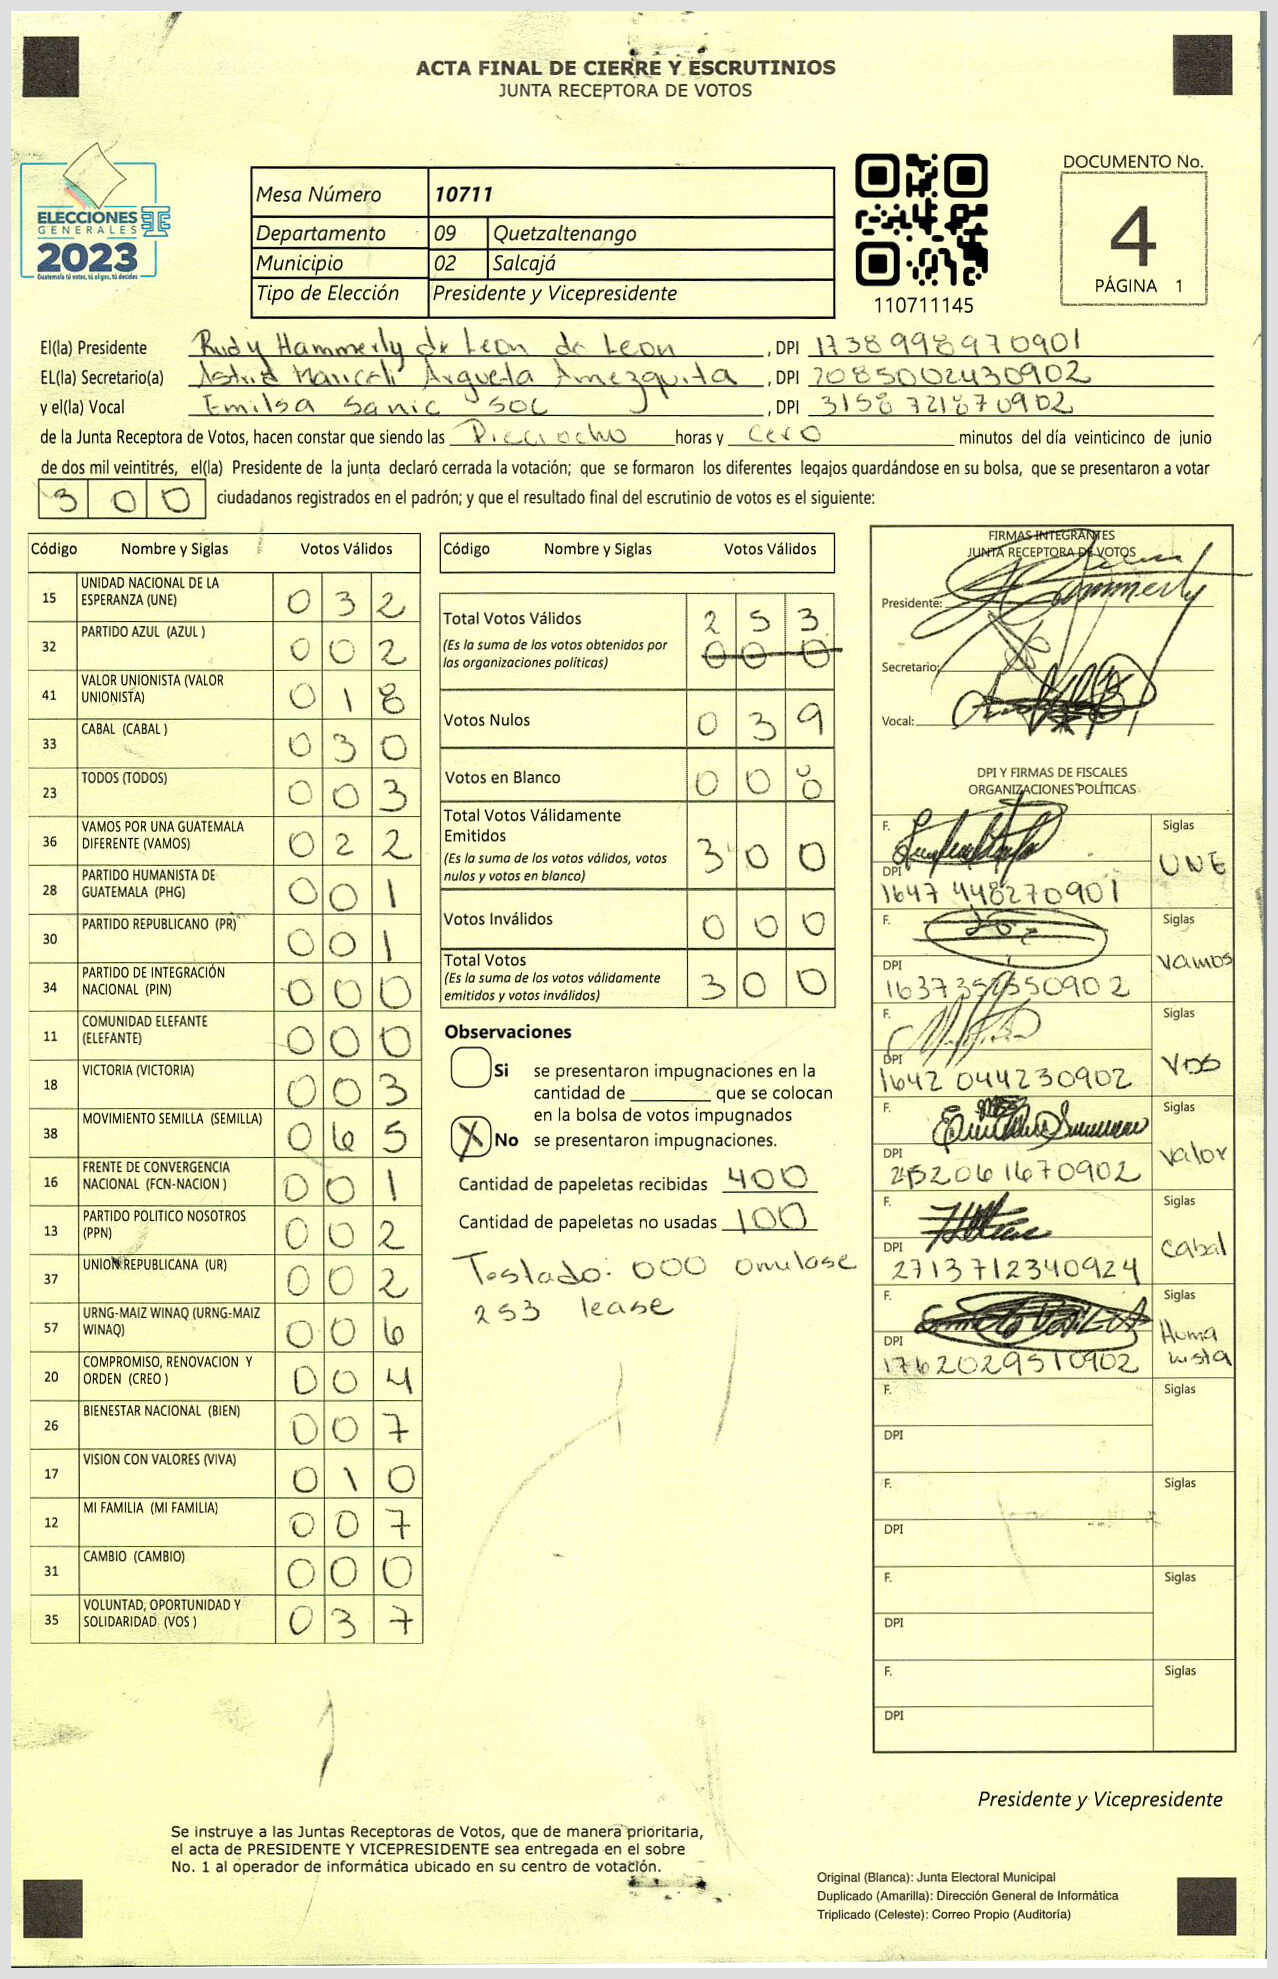 ACTA FINAL DE CIERRE Y ESCRUTINIOS
JUNTA RECEPTORA DE VOTOS
ELECCIONES
GENERALES
2023
Guatemala tú votas, tú eliges, tú decides
Mesa Número 10711
Departamento 09 Quetzaltenango
Municipio 02 Salcajá
Tipo de Elección Presidente y Vicepresidente
110711145
DOCUMENTO No.
4
PÁGINA 1
El(la) Presidente Rudy Hammerly de Leon de Leon, DPI 1738998970901
EL(la) Secretario(a) Astrid Maricoli Argueta Amezquita, DPI 2085002430902
y el(la) Vocal Emilsa Sanic Soc, DPI 3158721870902
de la Junta Receptora de Votos, hacen constar que siendo las Dieciocho horas y cero minutos del día veinticinco de junio
de dos mil veintitrés, el(la) Presidente de la junta declaró cerrada la votación; que se formaron los diferentes legajos guardándose en su bolsa, que se presentaron a votar
300 ciudadanos registrados en el padrón; y que el resultado final del escrutinio de votos es el siguiente:
Código Nombre y Siglas Votos Válidos
15 UNIDAD NACIONAL DE LA ESPERANZA (UNE) 032
32 PARTIDO AZUL (AZUL ) 002
41 VALOR UNIONISTA (VALOR UNIONISTA) 018
33 CABAL (CABAL ) 030
23 TODOS (TODOS) 003
36 VAMOS POR UNA GUATEMALA DIFERENTE (VAMOS) 022
28 PARTIDO HUMANISTA DE GUATEMALA (PHG) 001
30 PARTIDO REPUBLICANO (PR) 001
34 PARTIDO DE INTEGRACIÓN NACIONAL (PIN) 000
11 COMUNIDAD ELEFANTE (ELEFANTE) 000
18 VICTORIA (VICTORIA) 003
38 MOVIMIENTO SEMILLA (SEMILLA) 065
16 FRENTE DE CONVERGENCIA NACIONAL (FCN-NACION ) 001
13 PARTIDO POLITICO NOSOTROS (PPN) 002
37 UNION REPUBLICANA (UR) 002
57 URNG-MAIZ WINAQ (URNG-MAIZ WINAQ) 006
20 COMPROMISO, RENOVACION Y ORDEN (CREO ) 004
26 BIENESTAR NACIONAL (BIEN) 007
17 VISION CON VALORES (VIVA) 010
12 MI FAMILIA (MI FAMILIA) 007
31 CAMBIO (CAMBIO) 000
35 VOLUNTAD, OPORTUNIDAD Y SOLIDARIDAD (VOS ) 037
Código Nombre y Siglas Votos Válidos
Total Votos Válidos 253
(Es la suma de los votos obtenidos por las organizaciones políticas) 000
Votos Nulos 039
Votos en Blanco 008
Total Votos Válidamente Emitidos
(Es la suma de los votos válidos, votos nulos y votos en blanco) 300
Votos Inválidos 000
Total Votos
(Es la suma de los votos válidamente emitidos y votos inválidos) 300
Observaciones
Si se presentaron impugnaciones en la
cantidad de ________ que se colocan
en la bolsa de votos impugnados
X No se presentaron impugnaciones.
Cantidad de papeletas recibidas 400
Cantidad de papeletas no usadas 100
Testado: 000 omitase
253 lease
FIRMAS INTEGRANTES
JUNTA RECEPTORA DE VOTOS
Presidente:
Secretario:
Vocal:
DPI Y FIRMAS DE FISCALES
ORGANIZACIONES POLÍTICAS
F. Siglas UNE
DPI 1647 448270901
F. Siglas Vamos
DPI
F. Siglas VOS
DPI 1642 044230902
F. Siglas Valor
DPI
F. Siglas Cabal
DPI 2713712340924
F. Siglas Humanista
DPI 1762029510902
F. Siglas
DPI
F. Siglas
DPI
F. Siglas
DPI
F. Siglas
DPI
Presidente y Vicepresidente
Se instruye a las Juntas Receptoras de Votos, que de manera prioritaria,
el acta de PRESIDENTE Y VICEPRESIDENTE sea entregada en el sobre
No. 1 al operador de informática ubicado en su centro de votación.
Original (Blanca): Junta Electoral Municipal
Duplicado (Amarilla): Dirección General de Informática
Triplicado (Celeste): Correo Propio (Auditoría)